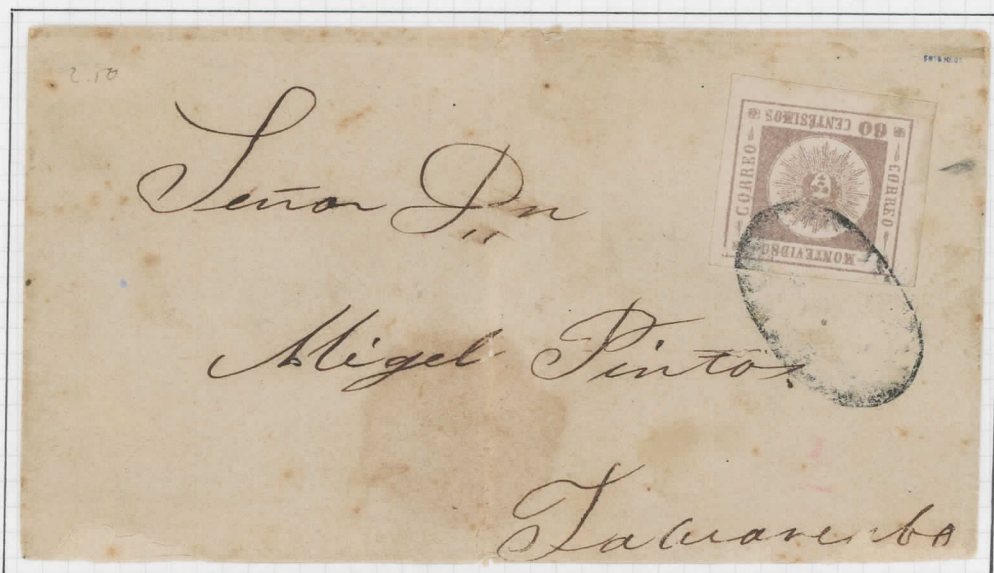 2.10
Señor Dn
Migel Pintos.
Tacuarembo
60 CENTÉSIMOS
CORREO
CORREO
MONTEVIDEO